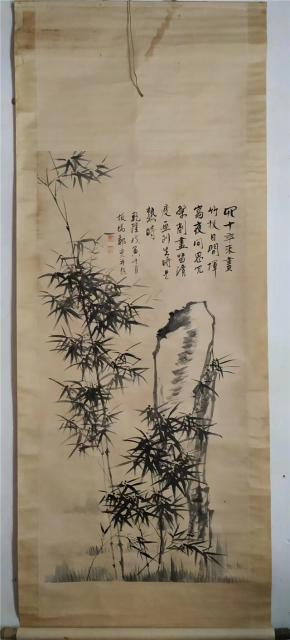 四十年來畫
竹枝日間揮
寫夜間思冗
繁削盡留清
瘦畫到生時是
熟時
乾隆戊寅十月
板橋鄭燮并題